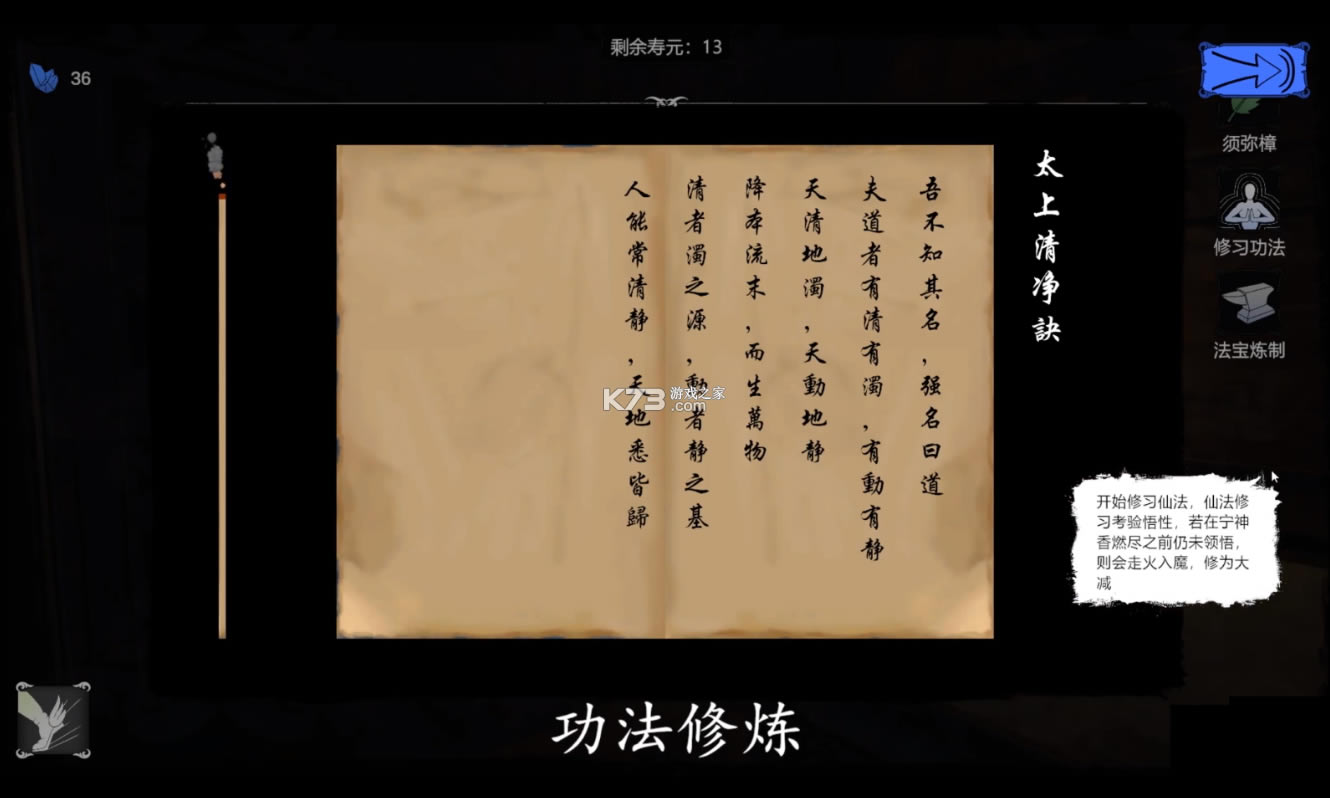 剩余寿元：13
36
太上清净訣
吾不知其名，强名曰道
夫道者有清有濁，有動有静
天清地濁，天動地静
降本流末，而生萬物
清者濁之源，動者静之基
人能常清静，天地悉皆歸
须弥樟
修习功法
法宝炼制
开始修习仙法，仙法修
习考验悟性，若在宁神
香燃尽之前仍未领悟，
则会走火入魔，修为大
减
K73 游戏之家
.com
功法修炼